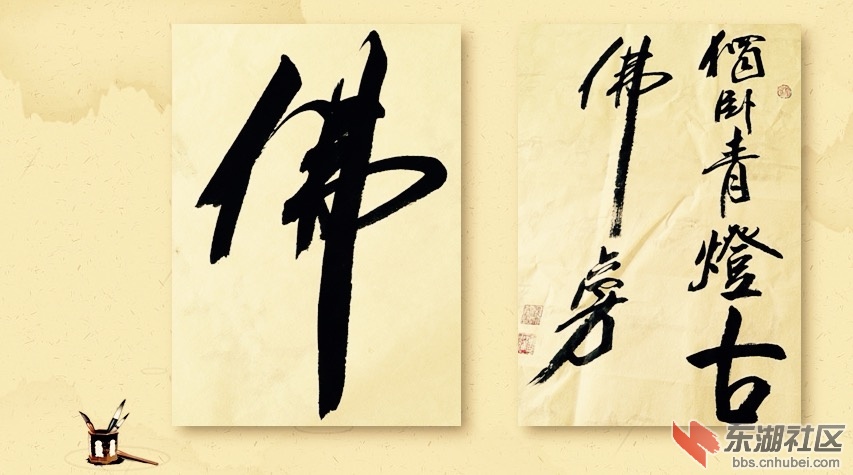 佛
獨卧青燈古
佛旁
东湖社区
bbs.cnhubei.com